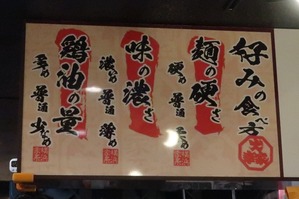 好みの食べ方
麺の硬さ
硬め 普通 柔め
味の濃さ
濃いめ 普通 薄め
鶏油の量
多め 普通 少なめ